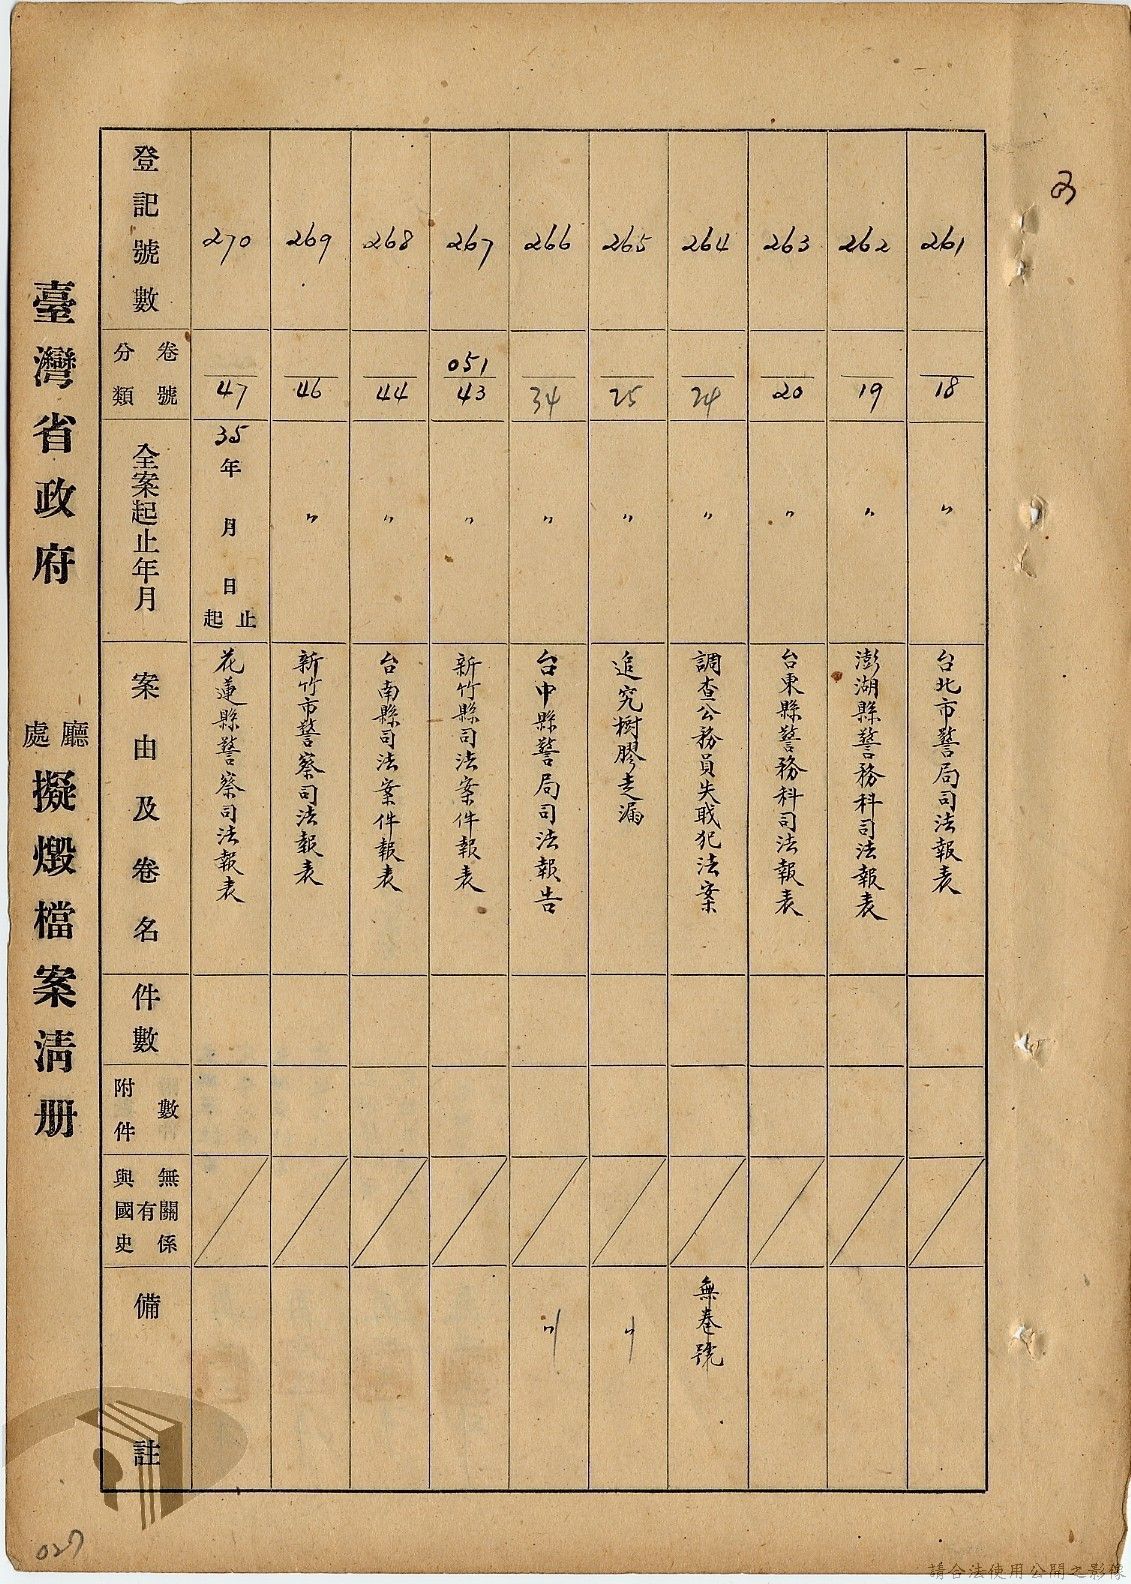 臺灣省政府 廳處 擬燬檔案清册
登記號數
分類 卷號
全案起止年月
案由及卷名
件數
附件數
與國史有無關係
備註
270
47
35年 月 日 起止
花蓮縣警察司法報表
269
46
〃
新竹市警察司法報表
268
44
〃
台南縣司法案件報表
267
051
43
〃
新竹縣司法案件報表
266
34
〃
台中縣警局司法報告
〃
265
25
〃
追究樹膠走漏
〃
264
24
〃
調查公務員失職犯法案
無卷號
263
20
〃
台東縣警務科司法報表
262
19
〃
澎湖縣警務科司法報表
261
18
〃
台北市警局司法報表
027
請合法使用公開之影像